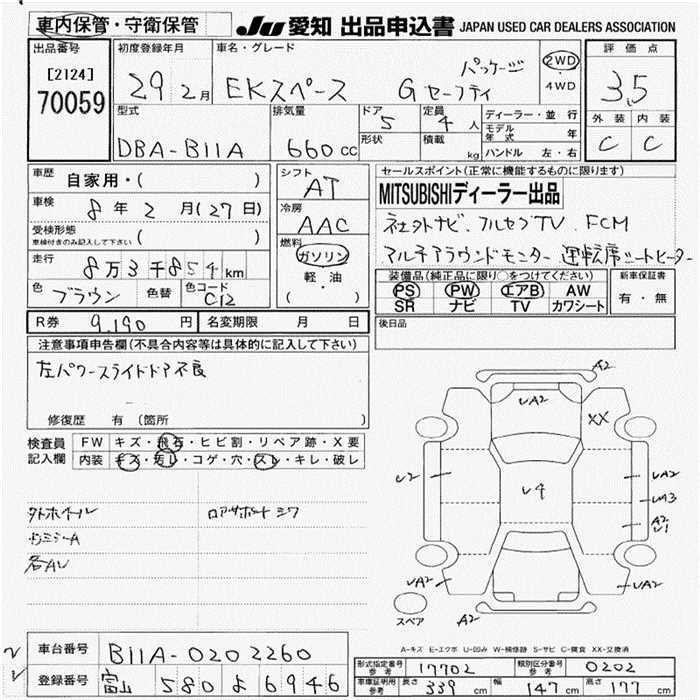 車内保管・守衛保管 JU 愛知 出品申込書 JAPAN USED CAR DEALERS ASSOCIATION
出品番号 初度登録年月 車名・グレード 評価点
[2124] 29 2月 EKスペース Gセーフティ パッケージ 2WD・4WD 3.5
70059
型式 排気量 ドア 5 定員 4人 ディーラー・並行 外装 内装
モデル年式 年 C C
DBA-B11A 660cc 形状 積載 kg ハンドル 左・右
車歴 自家用・( ) シフト AT セールスポイント(正常に機能するものに限ります)
MITSUBISHIディーラー出品
車検 8年2月(27日) 冷房 AAC
社外ナビ、フルセグTV、FCM
受検形態 ( )
車検付きのみ記入して下さい
燃料 ガソリン・軽・油 ( )
マルチアラウンドモニター 運転席シートヒーター
走行 8万3千854km
装備品(純正品に限り○をつけてください) 新車保証書
PS PW エアB AW 有・無
SR ナビ TV カワシート
色 ブラウン 色替 色コード C12
R券 9,190円 名変期限 月 日 後日品
注意事項申告欄(不具合内容等は具体的に記入して下さい)
左パワースライドドア不良
修復歴 有 (箇所 )
検査員記入欄 FW キズ・飛石・ヒビ割・リペア跡・X要
内装 キズ・汚レ・コゲ・穴・スレ・キレ・破レ
外ホイール ロアサポートシワ
各AU
A2
UA2
XX
U2
U4
UA2
UA3
A2
U1
UA2
UA2
A2
スペア
A-キズ E-エクボ U-凹み W-補修跡 S-サビ C-腐食 XX-交換済
車台番号 B11A-0202260
登録番号 富山 580 よ 6946
形式指定番号 参考 17702 類別区分番号 参考 0202
車庫証明用 参考 長さ 339cm 幅 147cm 高さ 177cm